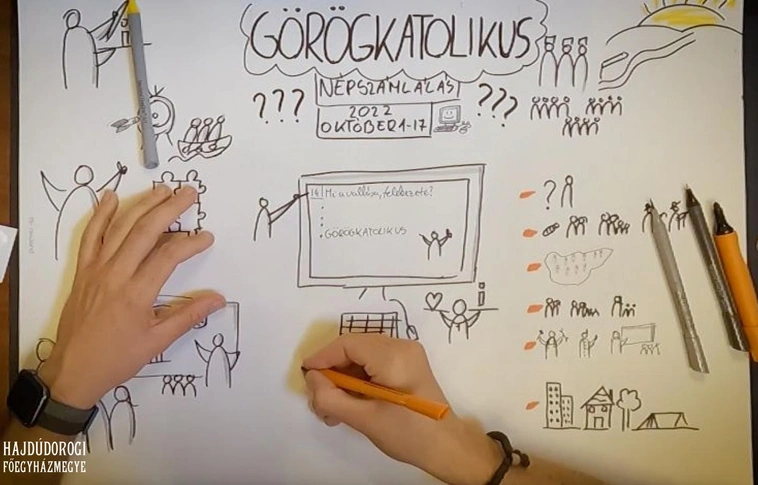 GÖRÖGKATOLIKUS
NÉPSZÁMLÁLÁS
??? ???
2022
OKTÓBER 1-17
14 Mi a vallása, felekezete?
GÖRÖGKATOLIKUS
i
?
HAJDÚDOROGI
FŐEGYHÁZMEGYE